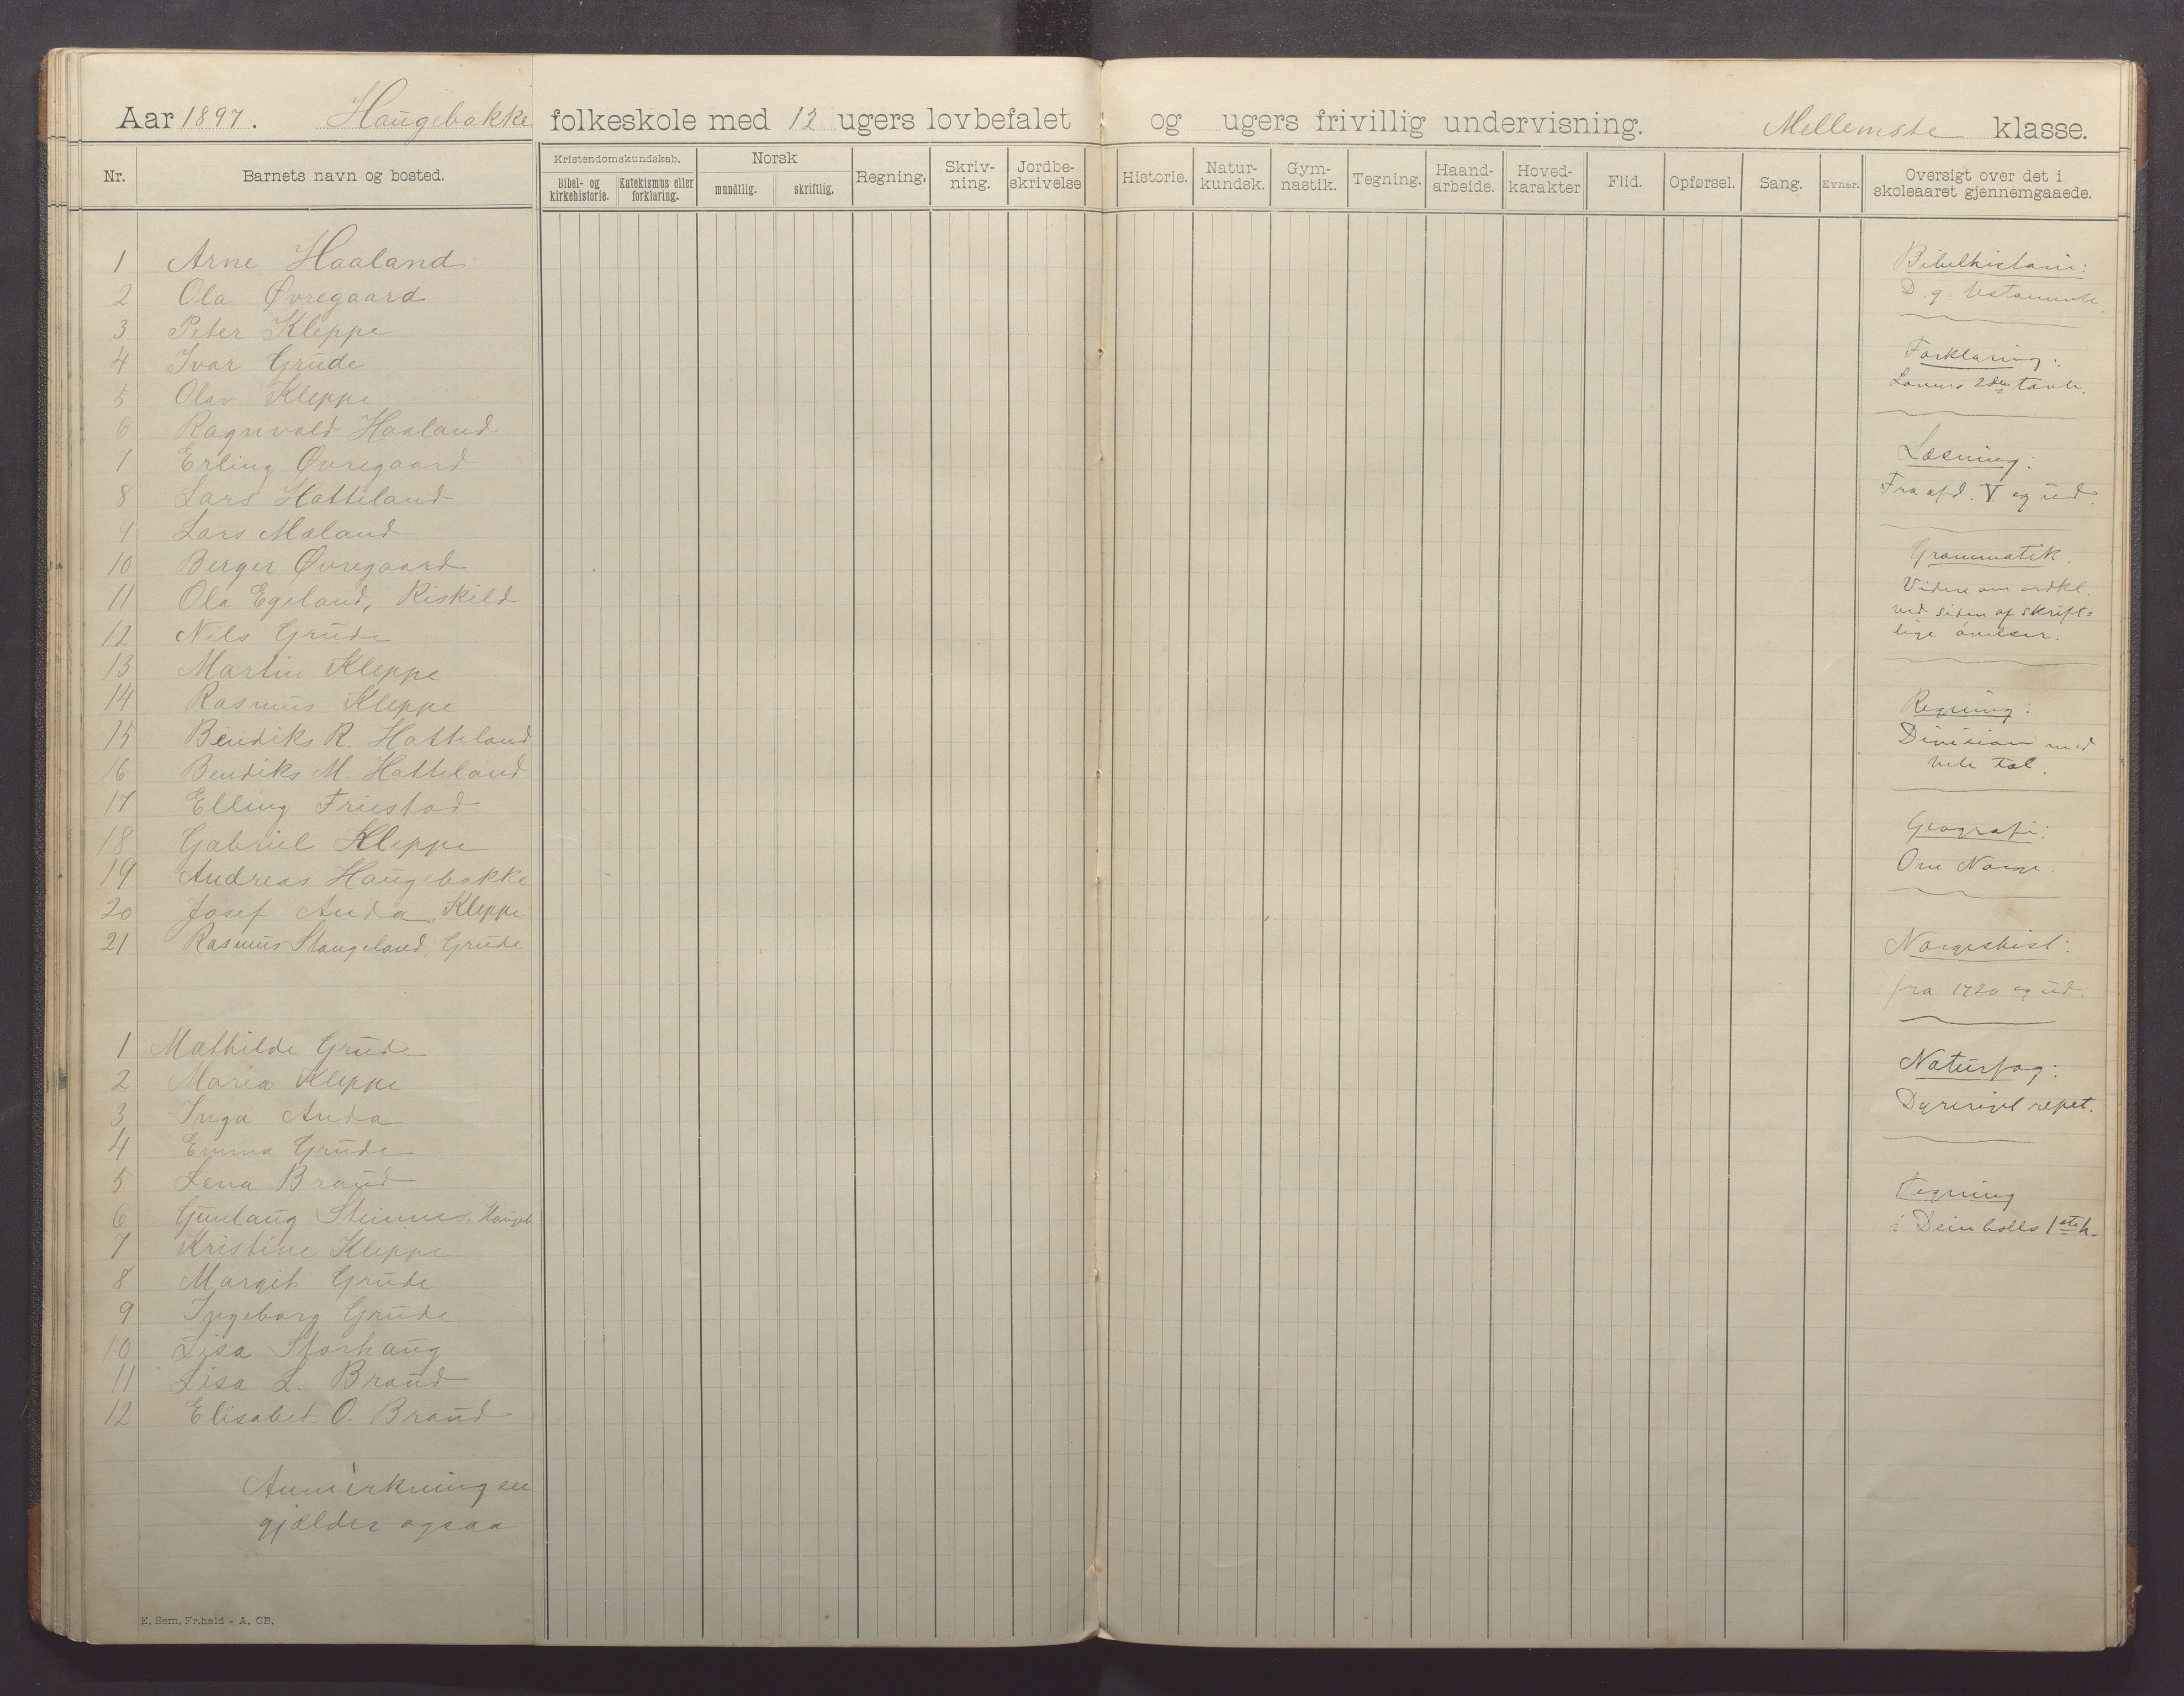 Aar 1897. Haugebakke folkeskole med 12 ugers lovbefalet og ugers frivillig undervisning. Mellemste klasse.
Nr. Barnets navn og bosted. Kristendomskundskab. Norsk Regning. Skriv-ning. Jordbe-skrivelse Historie. Natur-kundsk. Gym-nastik. Tegning. Haand-arbeide. Hoved-karakter Flid. Opførsel. Sang. Evner. Oversigt over det i skoleaaret gjennemgaaede.
Bibel- og kirkehistorie. Katekismus eller forklaring. mundtlig. skriftlig.
1 Arne Haaland
2 Ola Øvregaard
3 Peter Kleppe
4 Ivar Grude
5 Olav Kleppe
6 Ragnvald Haaland
7 Erling Øvregaard
8 Lars Hatteland
9 Lars Mæland
10 Berger Øvregaard
11 Ola Egeland, Riskild
12 Nils Grude
13 Martin Kleppe
14 Rasmus Kleppe
15 Bendiks R. Hatteland
16 Bendiks M. Hatteland
17 Elling Friestad
18 Gabriel Kleppe
19 Andreas Haugebakke
20 Josef Anda, Kleppe
21 Rasmus Stangeland, Grude
1 Mathilde Grude
2 Maria Kleppe
3 Inga Anda
4 Emma Grude
5 Lena Braud
6 Gunlaug Steinnes, Haugeb
7 Kristine Kleppe
8 Margit Grude
9 Ingeborg Grude
10 Lisa Storhaug
11 Lisa L. Braud
12 Elisabet O. Braud
Anmerkningen
gjælder ogsaa
E. Sem, Fr.hald - A. CB.
Bibelhistorie:
D. g. testamente.
Forklaring:
Lovens 2den tavle.
Læsning:
Fra afd. V og ud.
Grammatik.
Videre om ordkl.
ved siden af skrift=
lige øvelser.
Regning:
Division med
hele tal.
Geografi:
Om Norge.
Norgeshist:
fra 1720 og ud.
Naturfag:
Dyreriget repet.
Tegning
i Deinbolls 1ste h.